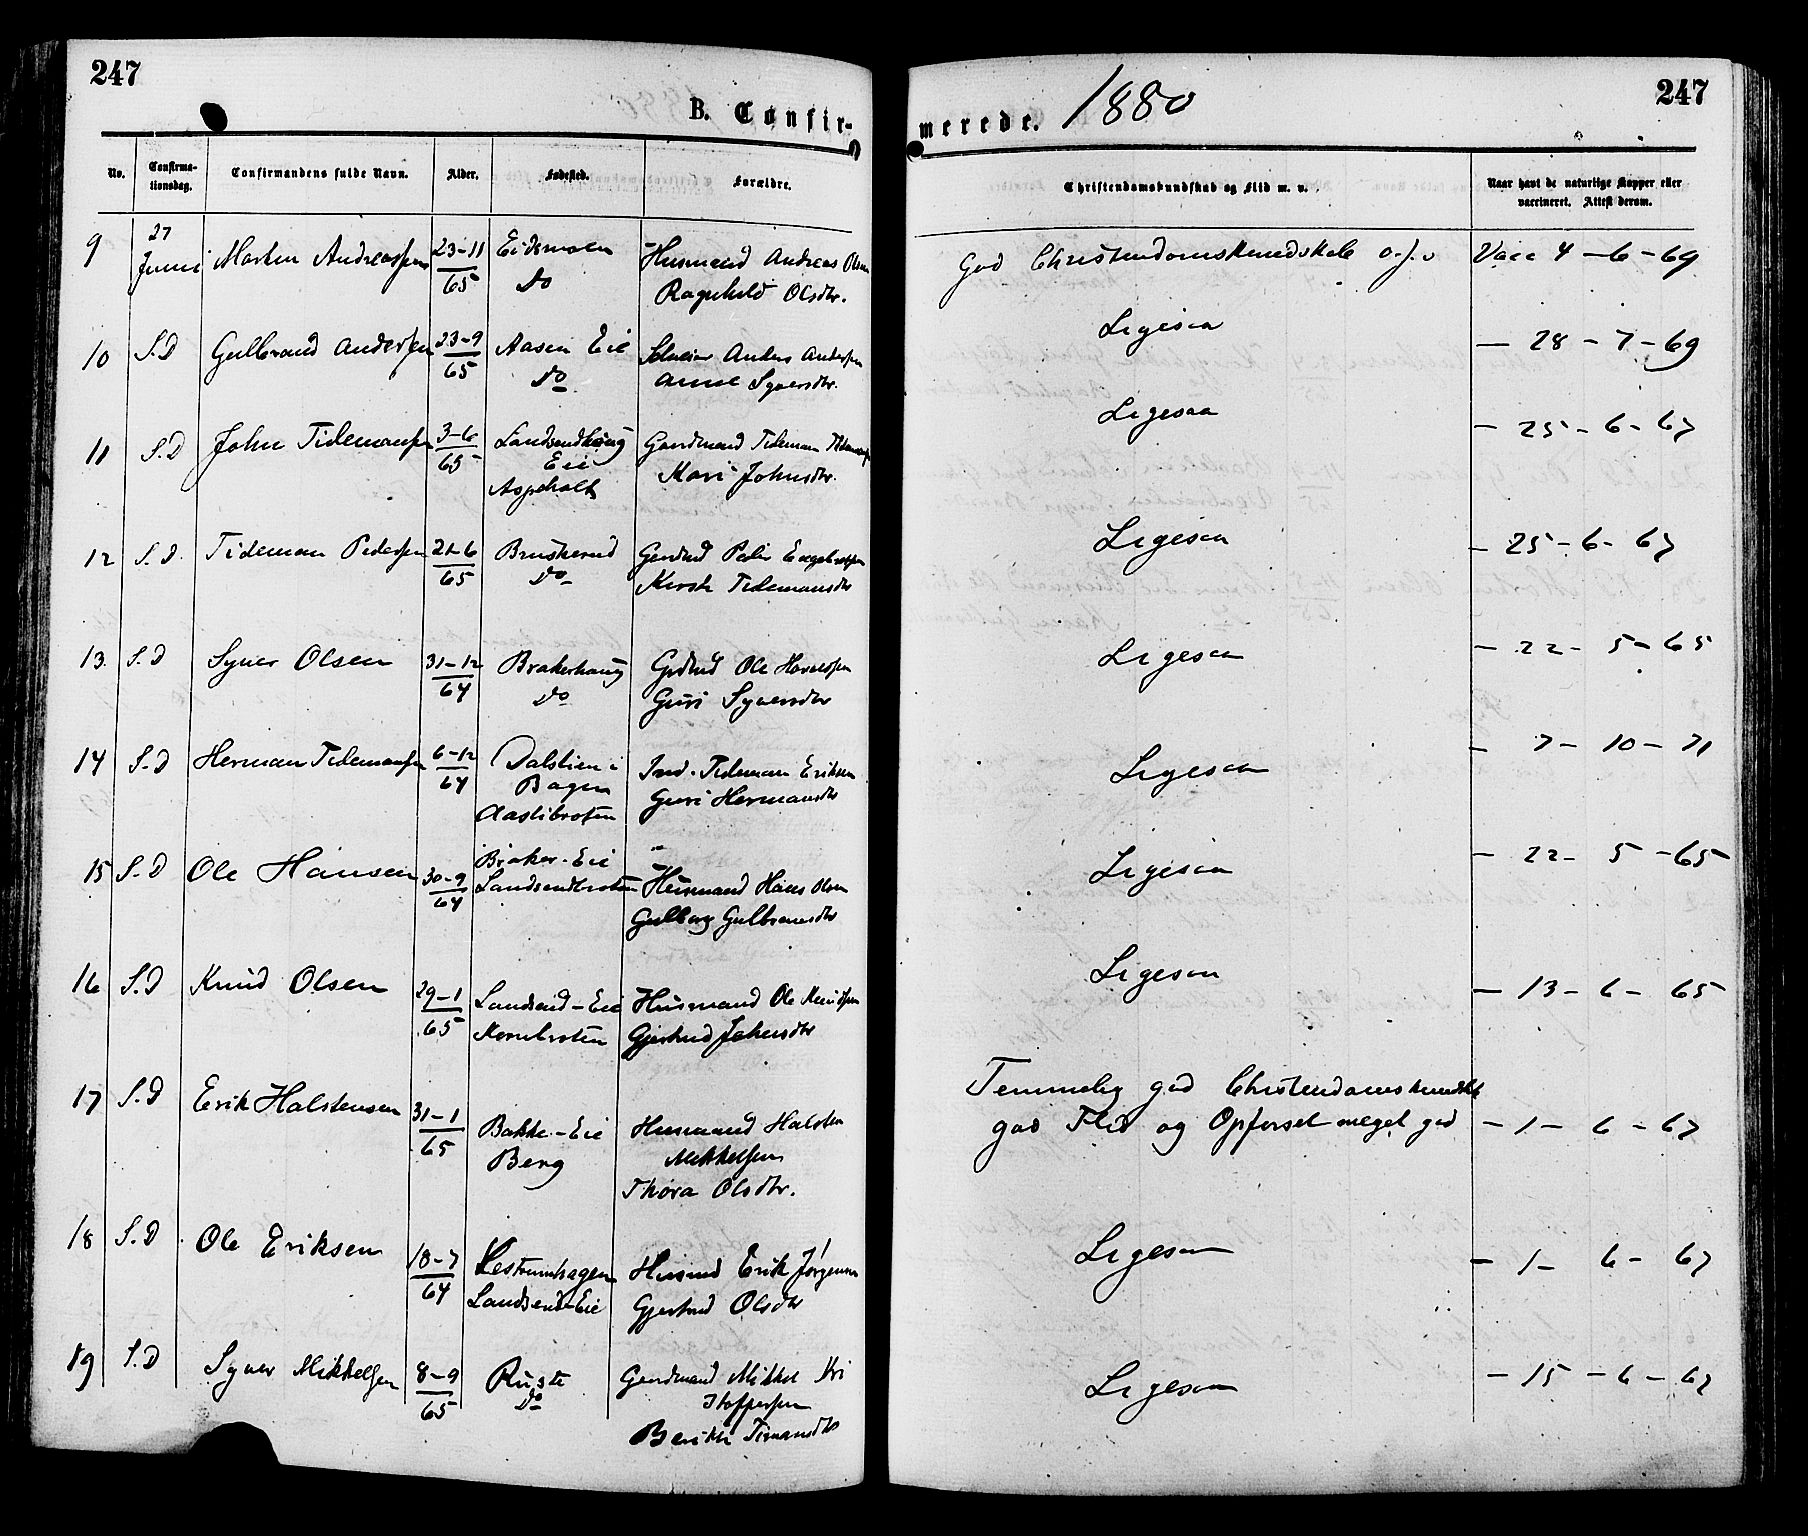 247
B. Confir-
No.
Confirma-
tionsdag.
Confirmandens fulde Navn.
Alder.
Fødested.
Forældre.
9
27
Juni
Morten Andreassen
23-11
65
Eidsmoen
Do
Husmand Andreas Olsen
Ragnhild Olsdtr.
10
S.D
Gulbrand Anderssen
23-9
65
Aasen Eie
Do
Anders Anderssen
Anne Syversdtr.
11
S.D
John Tidemanssen
3-6
65
Landsendhaug
Eie
Aspeholt
Gaardmand Tideman
Mari Johnsdtr.
12
S.D.
Tideman Pedersen
21-6
65
Bruskerud
Do
Peder Engebretsen
Kirsti Tidemansdtr
13.
S.D
Syver Olsen
31-12
64
Brakerhaug
Do
Ole
Guri Syversdtr
14
S.D
Herman Tidemanssen
6-12
64
Dalstien i
Bagn
Aaslibroten
Ind. Tideman Eriksen
Guri Hermansdtr
15
S.D
Ole Hansen
30-9
64
Braker-Eie
Landsendbroten
Husmand Hans Olsen
Gulbrandsdtr
16
S.D
Knud Olsen
29-1
65
Landsend-Eie
Kornbroten
Husmand Ole Knudssen
Gjertrud Johnsdtr
17
S.D
Erik Halstensen
31-1
65
Bakke-Eie
Berg
Husmand Halsten
Mikkelsen
Thora Olsdtr.
18
S.D.
Ole Eriksen
18-7
64
Landsend-Eie
Husmd Erik Jørgensen
Gjertrud Olsdtr
19
S.D
Syver Mikkelsen
8-9
65
Ruste
Do
Gaardmand Mikkel Kri
stoffersen
Tidmansdtr
247
merede. 1880
Christendomskundskab og Flid m. v.
Naar havt de naturlige Kopper eller
vaccineret. Attest derom.
God Christendomskundskab o.s.v
Vacc 4 - 6 - 69
Ligesaa
- 28 - 7 - 69
Ligesaa
- 25 - 6 - 67
Ligesaa
- 25 - 6 - 67
Ligesaa
- 22 - 5 - 65
Ligesaa
- 7 - 10 - 71
Ligesaa
- 22 - 5 - 65
Ligesaa
- 13 - 6 - 65
Temmelig god Christendomskundsk
god Flid og Opførsel meget god
- 1 - 6 - 67
Ligesaa
- 1 - 6 - 67
Ligesaa
- 15 - 6 - 67